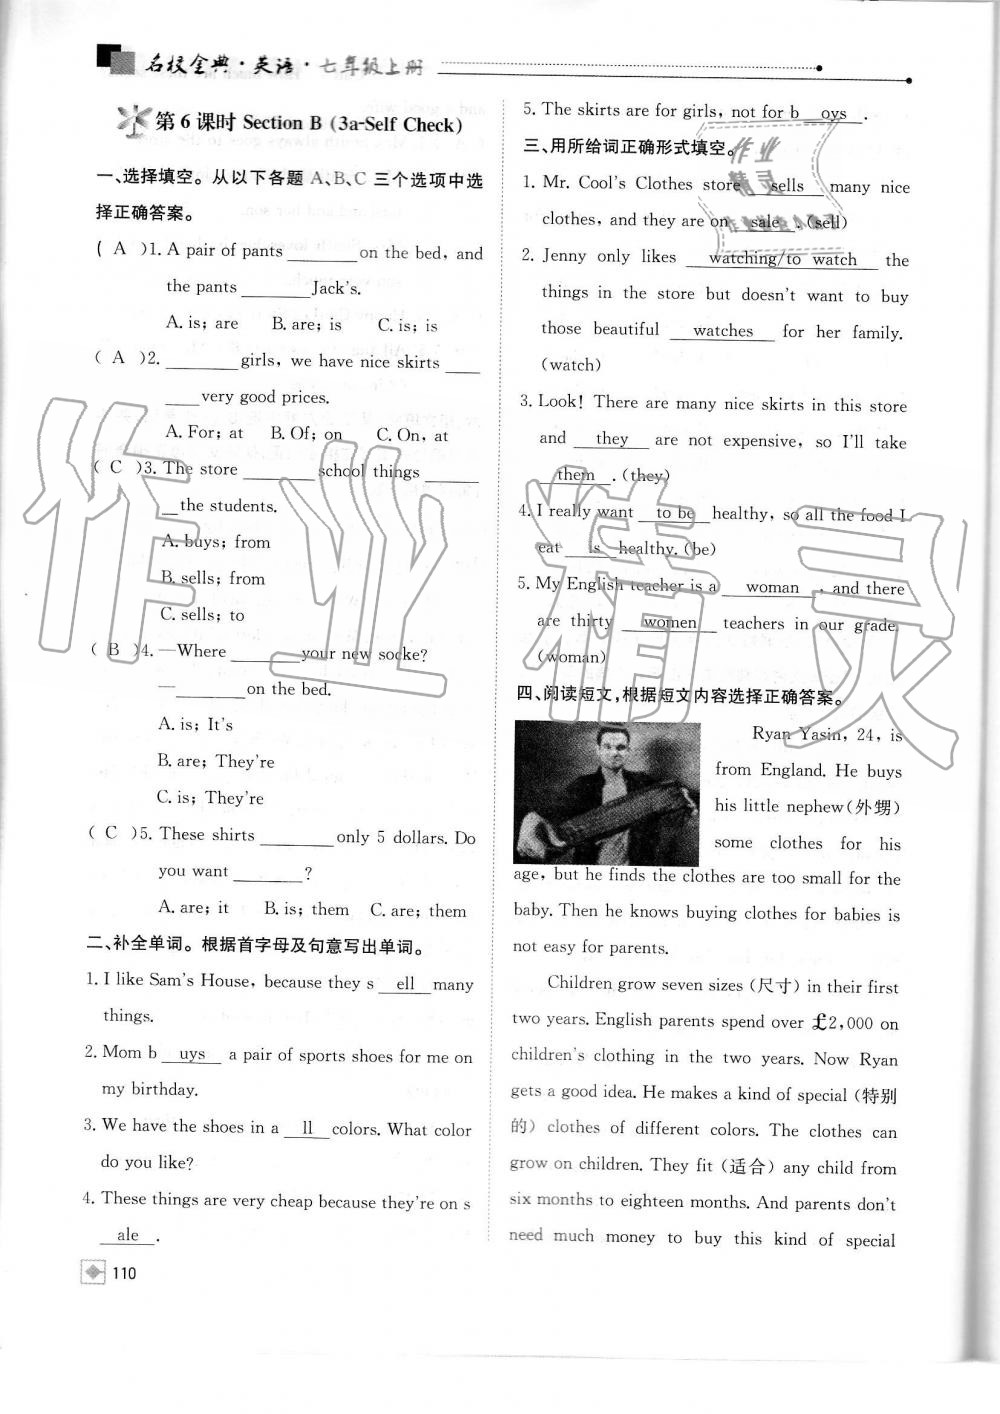 名校金典·英语·七年级上册
第6课时 Section B (3a-Self Check)
一、选择填空。从以下各题 A、B、C 三个选项中选
择正确答案。
( A )1. A pair of pants ________ on the bed, and
the pants ________ Jack's.
A. is; are B. are; is C. is; is
( A )2. ________ girls, we have nice skirts ____
____ very good prices.
A. For; at B. Of; on C. On, at
( C )3. The store ________ school things ______
__ the students.
A. buys; from
B. sells; from
C. sells; to
( B )4. —Where ________ your new socke?
—________ on the bed.
A. is; It's
B. are; They're
C. is; They're
( C )5. These shirts ________ only 5 dollars. Do
you want ________ ?
A. are; it B. is; them C. are; them
二、补全单词。根据首字母及句意写出单词。
1. I like Sam's House, because they s ell many
things.
2. Mom b uys a pair of sports shoes for me on
my birthday.
3. We have the shoes in a ll colors. What color
do you like?
4. These things are very cheap because they're on s
ale .
110
5. The skirts are for girls, not for b oys .
三、用所给词正确形式填空。
1. Mr. Cool's Clothes store sells many nice
clothes, and they are on sale . (sell)
2. Jenny only likes watching/to watch the
things in the store but doesn't want to buy
those beautiful watches for her family.
(watch)
3. Look! There are many nice skirts in this store
and they are not expensive, so I'll take
them . (they)
4. I really want to be healthy, so all the food I
eat is healthy. (be)
5. My English teacher is a woman , and there
are thirty women teachers in our grade.
(woman)
四、阅读短文,根据短文内容选择正确答案。
Ryan Yasin, 24, is
from England. He buys
his little nephew(外甥)
some clothes for his
age, but he finds the clothes are too small for the
baby. Then he knows buying clothes for babies is
not easy for parents.
Children grow seven sizes (尺寸) in their first
two years. English parents spend over £2,000 on
children's clothing in the two years. Now Ryan
gets a good idea. He makes a kind of special (特别
的) clothes of different colors. The clothes can
grow on children. They fit (适合) any child from
six months to eighteen months. And parents don't
need much money to buy this kind of special
作业精灵
作业
精灵